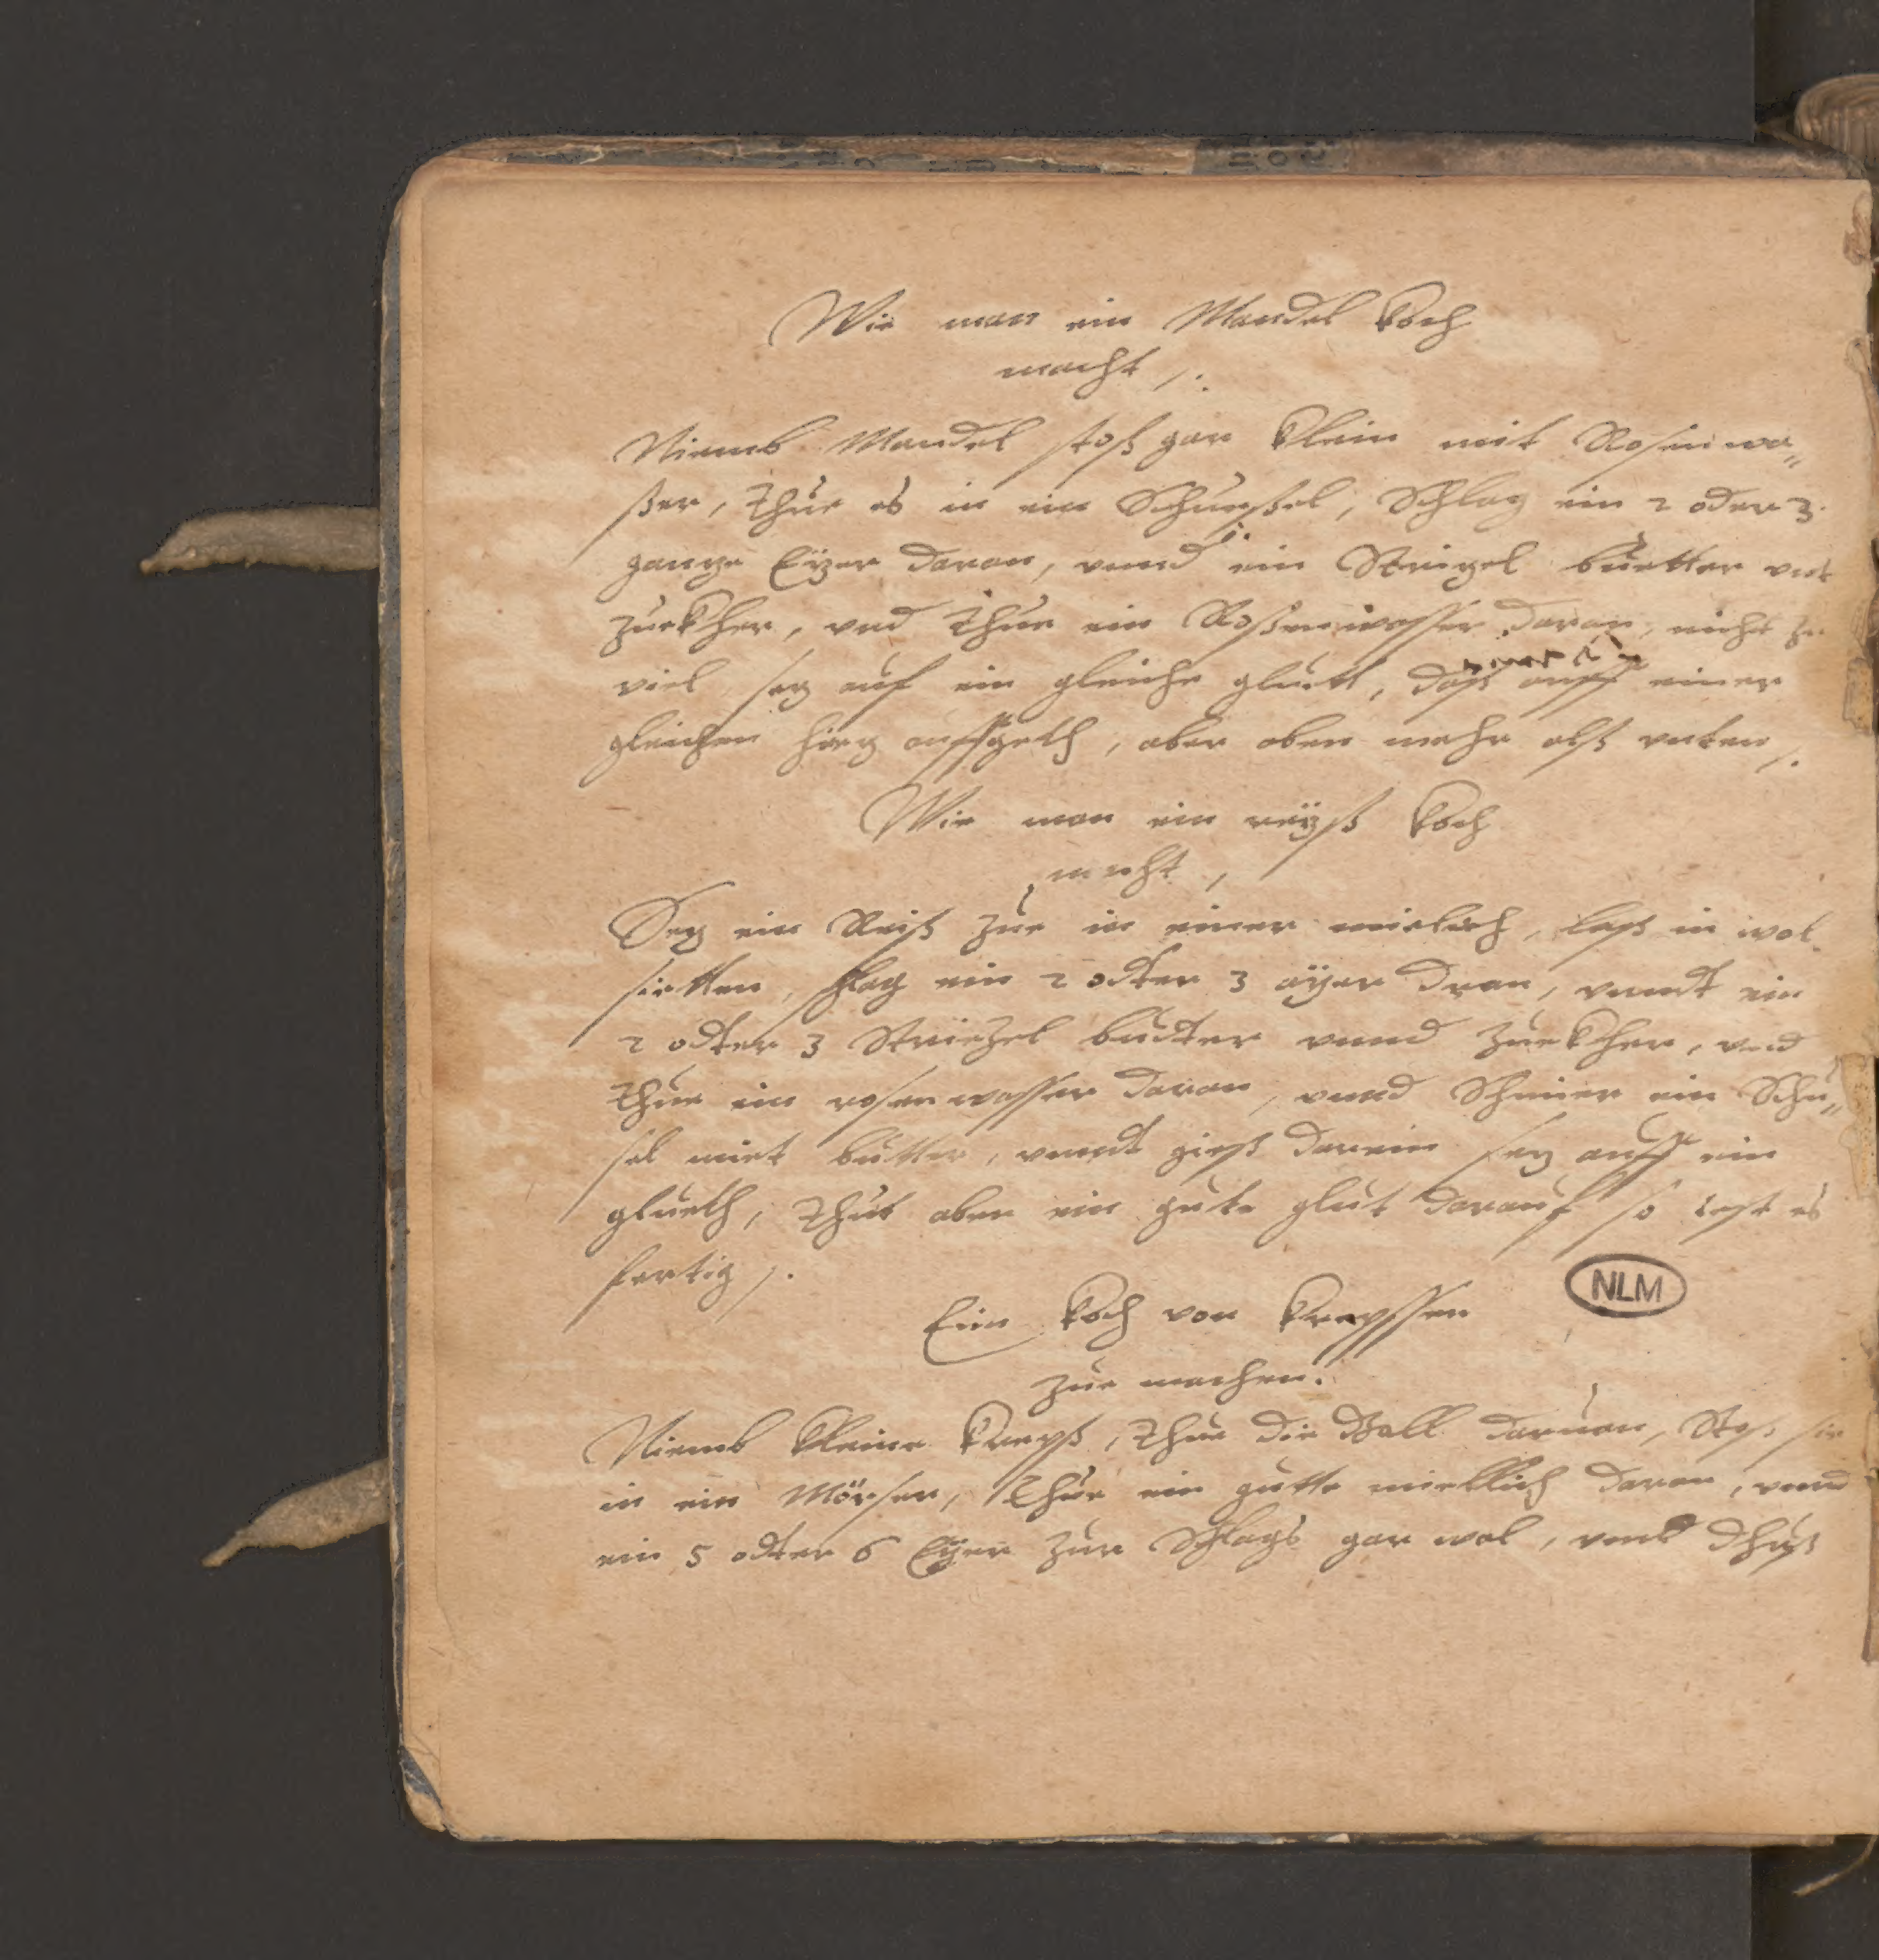 Wie man ein Mandel Koch
macht /.
Niemb Mandel stoß gar klein mit Rosenwa„
ßer, thue es in ein Schueßel, Schlag ein 2 oder 3
ganze Eÿer daran, vnnd ein Strizel buetter vnt
zuekher, vnd thue ein Roßenwasser daran, nicht zu
viel sez auf ein gleiche gluett, daß auff einer
gleichen hiez auffgeth, aber oben mehr alß vnten /.
Wie man ein reÿß Koch
macht,
Sez ein Reiß zue in einer mielich, laß in wol
sietten, schlag ein 2 odter 3 aÿer dran, vnndt ein
2 odter 3 Striezel budter vnnd zuekher, vnd
thue ein rosenwasser daran, vnnd Schmier ein Schu„
sel miet butter, vnndt gieß darein sez auff ein
glueth, thue aber ein gute glut darauf so ist es
fertig /.
Ein Koch von Krepssen
zue machen.
Niemb kleine Krepß, thue die Gall daruon, Stoß sie
in ein Mörser, thue ein gutte miellich daran, vnnd
ein 5 odter 6 Eÿer zue Schlags gar wol, vnd
NLM